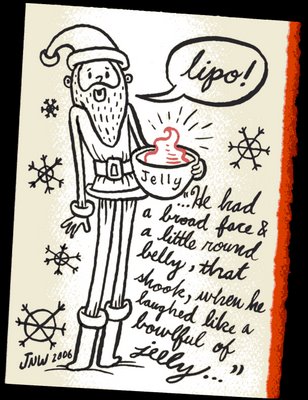 lipo!
Jelly
"...He had
a broad face &
a little round
belly, that
shook, when he
laughed like a
bowlful of
jelly..."
JNW 2006